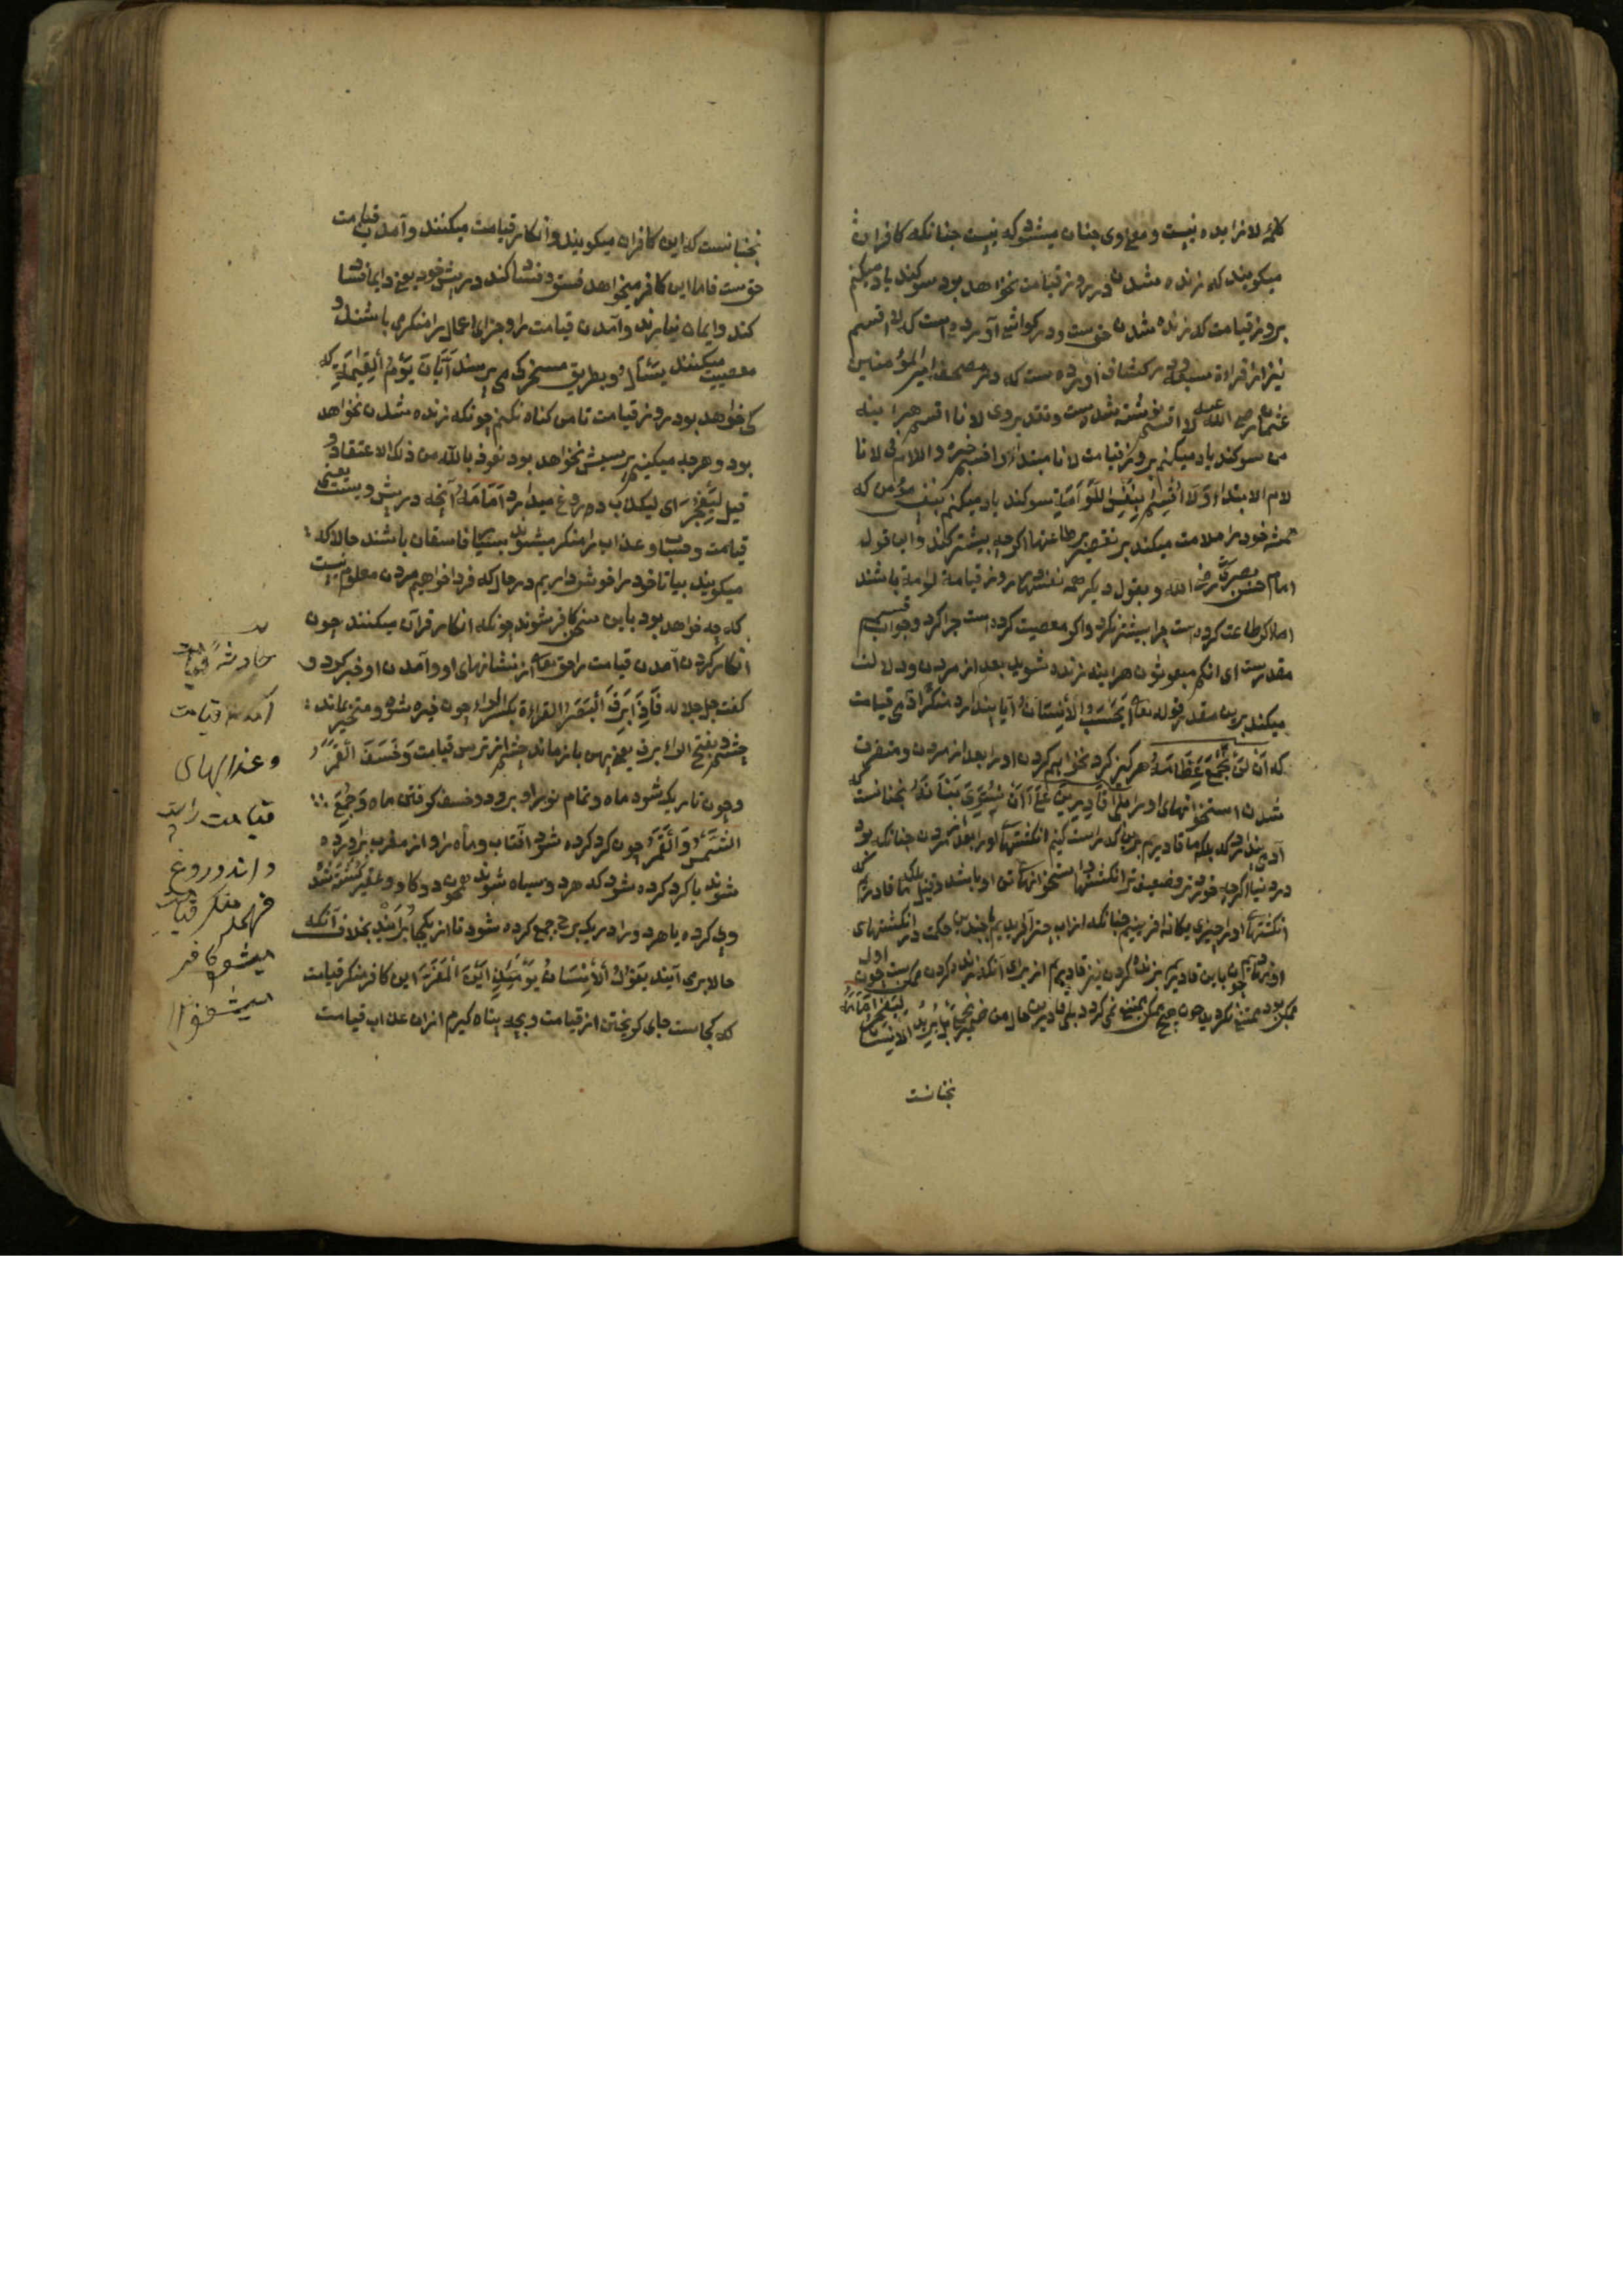 كلمهٔ لا زایده نیست و معنی وی چنان میشود كه نیست چنانكه كافران
میكویند كه زنده شدن در روز قیامت نخواهد بود سوكند یاد میكنم
بروز قیامت كه زنده شدن حق ست و در كواشی آورده است كه لا اقسم
نیز از قراءة سبعه و در كشاف آورده ست كه در مصحف امیر المؤمنین
عثمان رضی الله عنه لا اقسم نوشته شده ست و تقدیر وی لانا اقسم هر اینه
من سوكند یاد میكنم بروز قیامت لانا مبتدا و اقسم خبره و اللام فی لانا
لام الابتداء وَلَا أُقْسِمُ بِالنَّفْسِ اللَّوَّامَةِ سوكند یاد میكنم بنفس مؤمن كه
همیشه خود را ملامت میكند بر تقصیر طاعتها اكرچه بیشتر كند و این قول
امام حسن بصری رضی الله و بقول دیكر همه نفسها روز قیامة لوامة باشند
اما اكر طاعت كرده است چرا بیشتر نكرد و اكر معصیت كرده است چرا كرد و جواب قسم
مقدرست ای انكم مبعوثون هر ایند زنده شوید بعد از مردن و دلالت
میكند برین مقدر قوله تعالی أَيَحْسَبُ الْأِنْسَانُ آیا پندارد منكر آمدی قیامت
كه أَنْ لَنْ نَجْمَعَ عِظَامَهُ هركز كرد نخواهیم كردن او را بعد از مردن و متفرق
شدن استخوانهای او را بَلَىٰ قَادِرِينَ عَلَىٰ أَنْ نُسَوِّيَ بَنَانَهُ نچنانست كه
آدمی پندارد كه بلكه ما قادریم برین كه راست كنیم انكشتهای او را بعد از مردن چنانكه بود
در دنیا اكرچه خورد تر و ضعیف تر انكشتها استخوانهای تن او باشد و قیل بلكه ما قادریم كه
انكشتهای او از چیزی یكانه افرینیم چنانكه از آب چیز آفریدیم با چندین حكمت در انكشتهای
او نهادیم چون باین قادریم بزنده كردن نیز قادریم از برای آنكه زنده كردن ممكن ست چون اول
ممكن بود ممتنع نكردید چون هیچ ممكن ممتنع نمی كردد بلی قادرین حال من ضمیر نجمع بَلْ يُرِيدُ الْإِنْسَانُ لِيَفْجُرَ أَمَامَهُ
نچنانست
نچنانست كه این كافران میكویند و انكار قیامت میكنند و آمدن قیامت
حق ست فاما این كافر میخواهد فسق و فساد كند در پیش خود یعنی دایم فساد
كند و ایمان نیارند و آمدن قیامت را و جزای اعمال را منكر می باشند و
معصیت میكنند يَسْئَلُ و بطریق مسخركی می پرسند أَيَّانَ يَوْمُ الْقِيٰمَةِ كه
كی خواهد بود روز قیامت تا من كناه نكنم چونكه زنده شدن نخواهد
بود و هرچه میكنیم پرسش نخواهد بود نعوذ بالله من ذلك الاعتقاد و
قیل لِيَفْجُرَ ای لیكذب دروغ میدارد أَمَامَهُ آنچه در پیش ویست یعنی
قیامت و حساب و عذاب را منكر میشوند بسیا فاسقان باشند حالا كه
میكویند بیا تا خود را خوش داریم در حال كه فردا خواهیم مردن معلوم نیست
كه چه خواهد بود باین سخن كافر شوند چونكه انكار قرآن میكنند چون
انكار كردن آمدن قیامت را حق تعالی از نشانهای او و آمدن او خبر كرد و
كفت جل جلاله فَإِذَا بَرِقَ الْبَصَرُ القراءة بكسر الراء چون خیره شود و متحیر بماند
چشم و بفتح الراء برق یعنی پهن باز ماند چشم از ترس قیامت وَخَسَفَ الْقَمَرُ
و چون تاریك شود ماه و تمام نور او برود و خسف كرفتن ماه وَجُمِعَ
الشَّمْسُ وَالْقَمَرُ چون كرد كرده شود آفتاب و ماه را و از مغرب برآورده
شوند یا كرد كرده شود كه هردو سیاه شوند همچون دو كاو
وپی كرده یا هردو را در یك برج جمع كرده شود تا از یكجا برآمدند بخلاف آنكه
حالا بری آیند يَقُولُ الْأِنْسَانُ يَوْمَئِذٍ أَيْنَ الْمَفَرُّ این كافر منكر قیامت
كه كجاست جای كریختن از قیامت و بچه پناه كیرم از ان عذاب قیامت
حادثهٔ قیامت
آمدن قیامت
و عذابهای
قیامت را
داند دروغ
منكر قیامت
میشود كافر
میشود